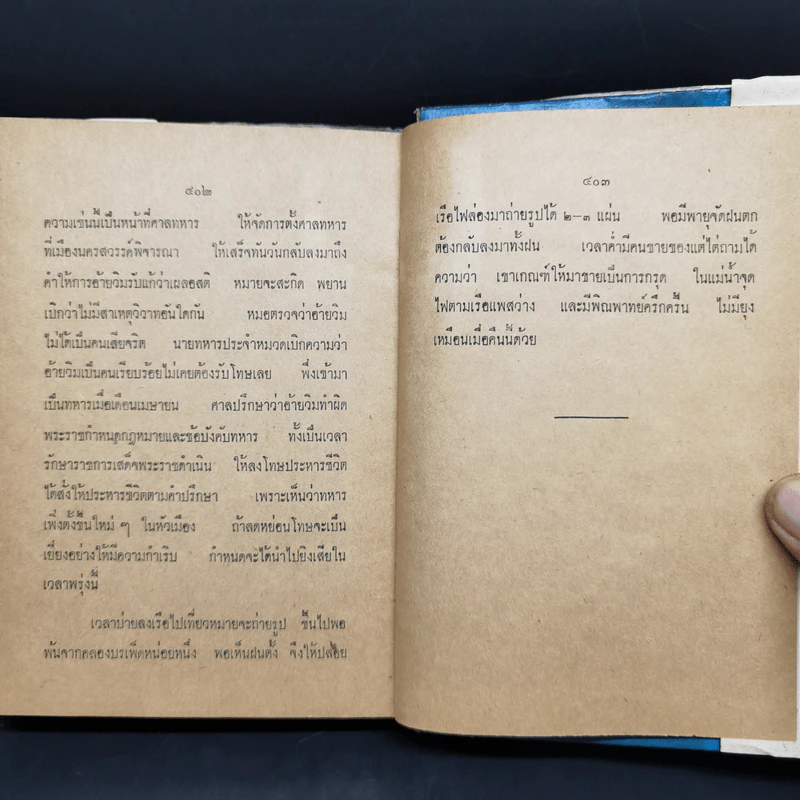 ๔๐๒
ความเช่นนี้เป็นหน้าที่ศาลทหาร ให้จัดการตั้งศาลทหาร
ที่เมืองนครสวรรค์พิจารณา ให้เสร็จทันวันกลับลงมาถึง
คำให้การอ้ายวิมรับแก้ว่าเผลอสติ หมายจะสะกิด พยาน
เบิกว่าไม่มีสาเหตุวิวาทอันใดกัน หมอตรวจว่าอ้ายวิม
ไม่ได้เป็นคนเสียจริต นายทหารประจำหมวดเบิกความว่า
อ้ายวิมเป็นคนเรียบร้อยไม่เคยต้องรับโทษเลย พึ่งเข้ามา
เป็นทหารเมื่อเดือนเมษายน ศาลปรึกษาว่าอ้ายวิมทำผิด
พระราชกำหนดกฎหมายและข้อบังคับทหาร ทั้งเป็นเวลา
รักษาราชการเสด็จพระราชดำเนิน ให้ลงโทษประหารชีวิต
ได้สั่งให้ประหารชีวิตตามคำปรึกษา เพราะเห็นว่าทหาร
เพิ่งตั้งขึ้นใหม่ ๆ ในหัวเมือง ถ้าลดหย่อนโทษจะเป็น
เยี่ยงอย่างให้มีความกำเริบ กำหนดจะได้นำไปยิงเสียใน
เวลาพรุ่งนี้
เวลาบ่ายลงเรือไปเที่ยวหมายจะถ่ายรูป ขึ้นไปพอ
พ้นจากคลองบรเพ็ดหน่อยหนึ่ง พอเห็นฝนตั้ง จึงให้ปล่อย
๔๐๓
เรือไฟล่องมาถ่ายรูปได้ ๒-๓ แผ่น พอมีพายุจัดฝนตก
ต้องกลับลงมาทั้งฝน เวลาค่ำมีคนขายของแต่ไต่ถามได้
ความว่า เขาเกณฑ์ให้มาขายเป็นการกรุด ในแม่น้ำจุด
ไฟตามเรือแพสว่าง และมีพิณพาทย์ครึกครื้น ไม่มียุง
เหมือนเมื่อคืนนี้ด้วย